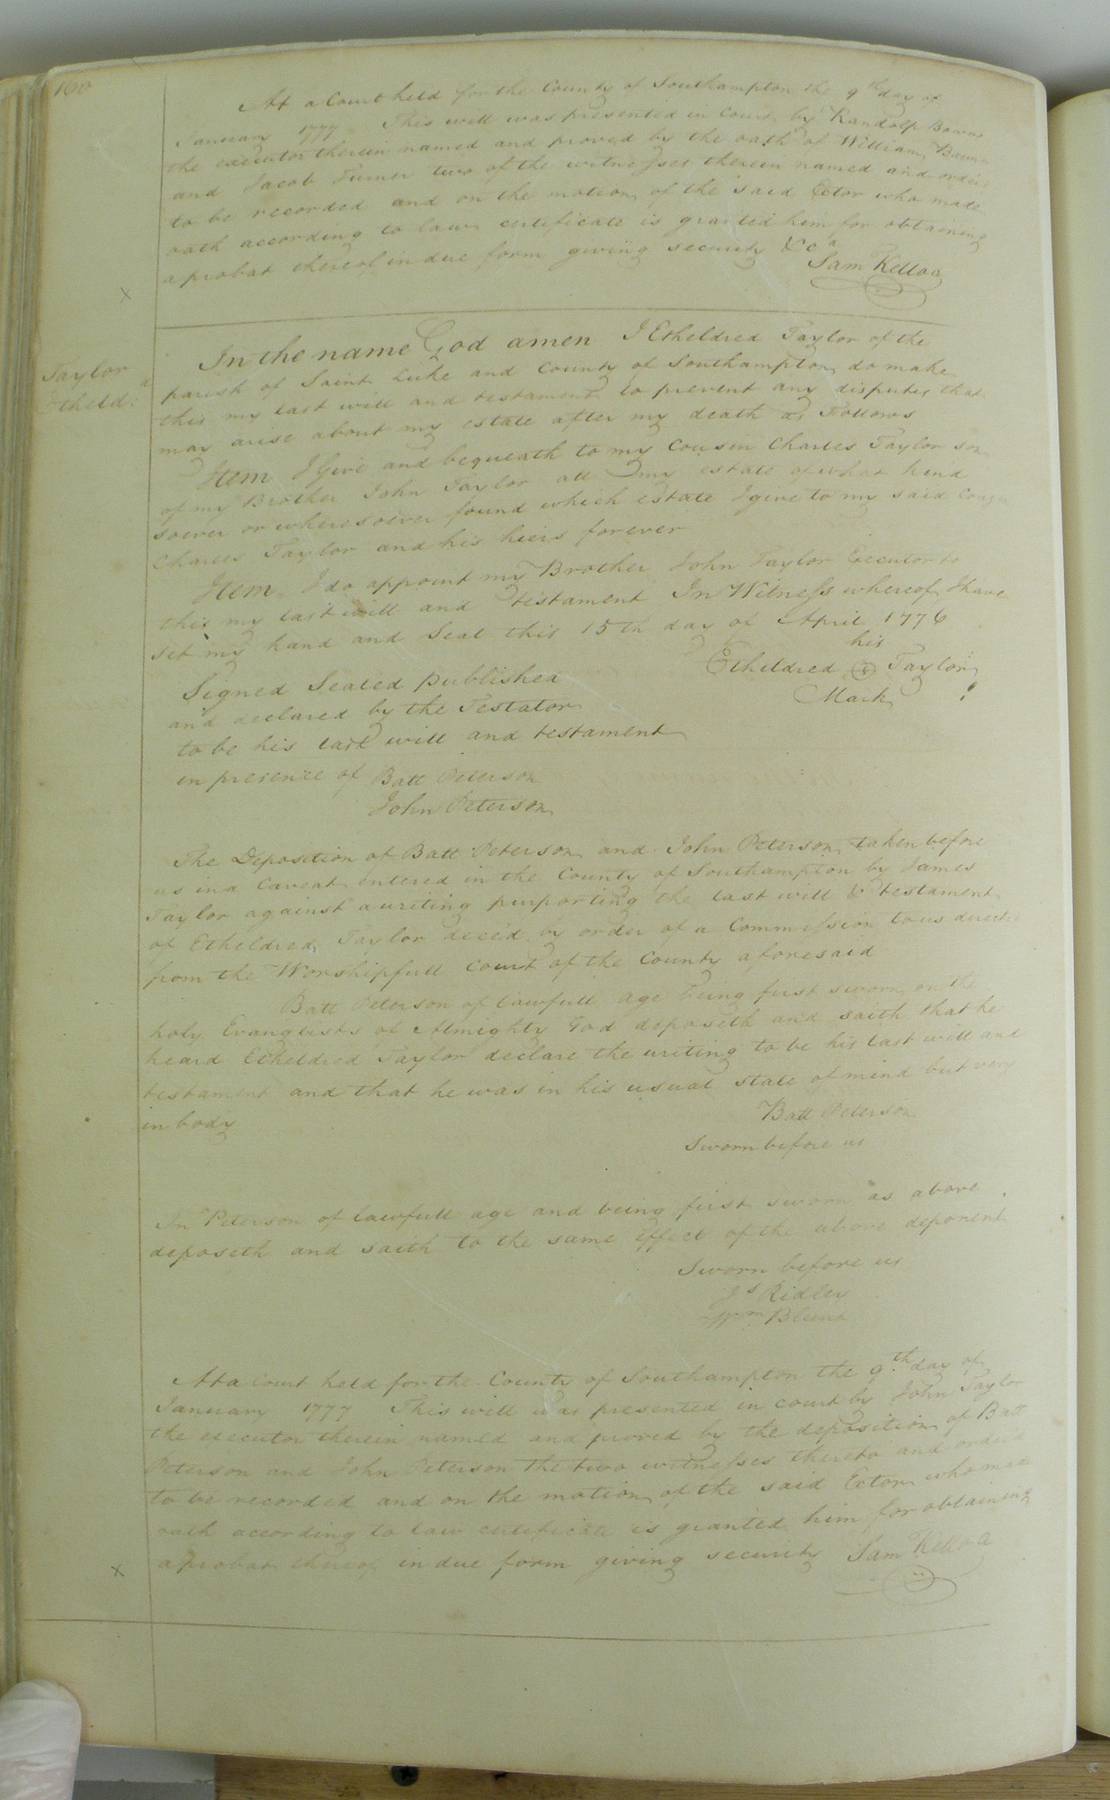 160
At a Court held for the County of Southampton the 9th day of
January 1777 This will was presented in Court by Randolp
the executor therein named and proved by the oath of William
and Jacob Turner two of the witnesses therein named and orderd
to be recorded and on the motion of the said Ector who made
oath according to law certificate is granted him for obtaining
a probat thereof in due form giving security &ca
Sam Kelloa
Taylor
Etheldd
In the name God amen I Etheldred Taylor of the
parish of Saint Luke and County of Southampton do make
this my last will and testament to prevent any disputes that
may arise about my estate after my death as Follows
Item I Give and bequeath to my Cousin Charles Taylor son
of my Brother John Taylor all my estate of what kind
soever or wheresoever found which estate I give to my said
Charles Taylor and his heirs forever
Item I do appoint my Brother John Taylor Executor to
this my last will and testament In Witness whereof I have
set my hand and Seal this 15th day of April 1776
his
Etheldred Taylor
Mark
Signed Sealed published
and declared by the Testator
to be his last will and testament
in presence of Batt Peterson
John Peterson
The Deposition of Batt Peterson and John Peterson taken before
us in a Caveat entered in the County of Southampton by James
Taylor against a writing purporting the last will & testament
of Etheldred Taylor deced by order of a Commission to us direct
from the Worshipfull Court of the County aforesaid
Batt Peterson of lawfull age being first sworn on the
holy Evanglists of Almighty God deposeth and saith that he
heard Etheldred Taylor declare the writing to be his last will and
testament and that he was in his usual state of mind but very
in body
Batt Peterson
Sworn before us
Jno Peterson of lawfull age and being first sworn as above
deposeth and saith to the same effect of the above deponent
Sworn before us
Js Ridley
Wm Blunt
At a Court held for the County of Southampton the 9th day of
January 1777 This will was presented in court by John Taylor
the executor therein named and proved by the deposition of Batt
Peterson and John Peterson the two witnesses thereto and orderd
to be recorded and on the motion of the said Ector who made
oath according to law certificate is granted him for obtaining
a probat thereof in due form giving security Sam Kelloa